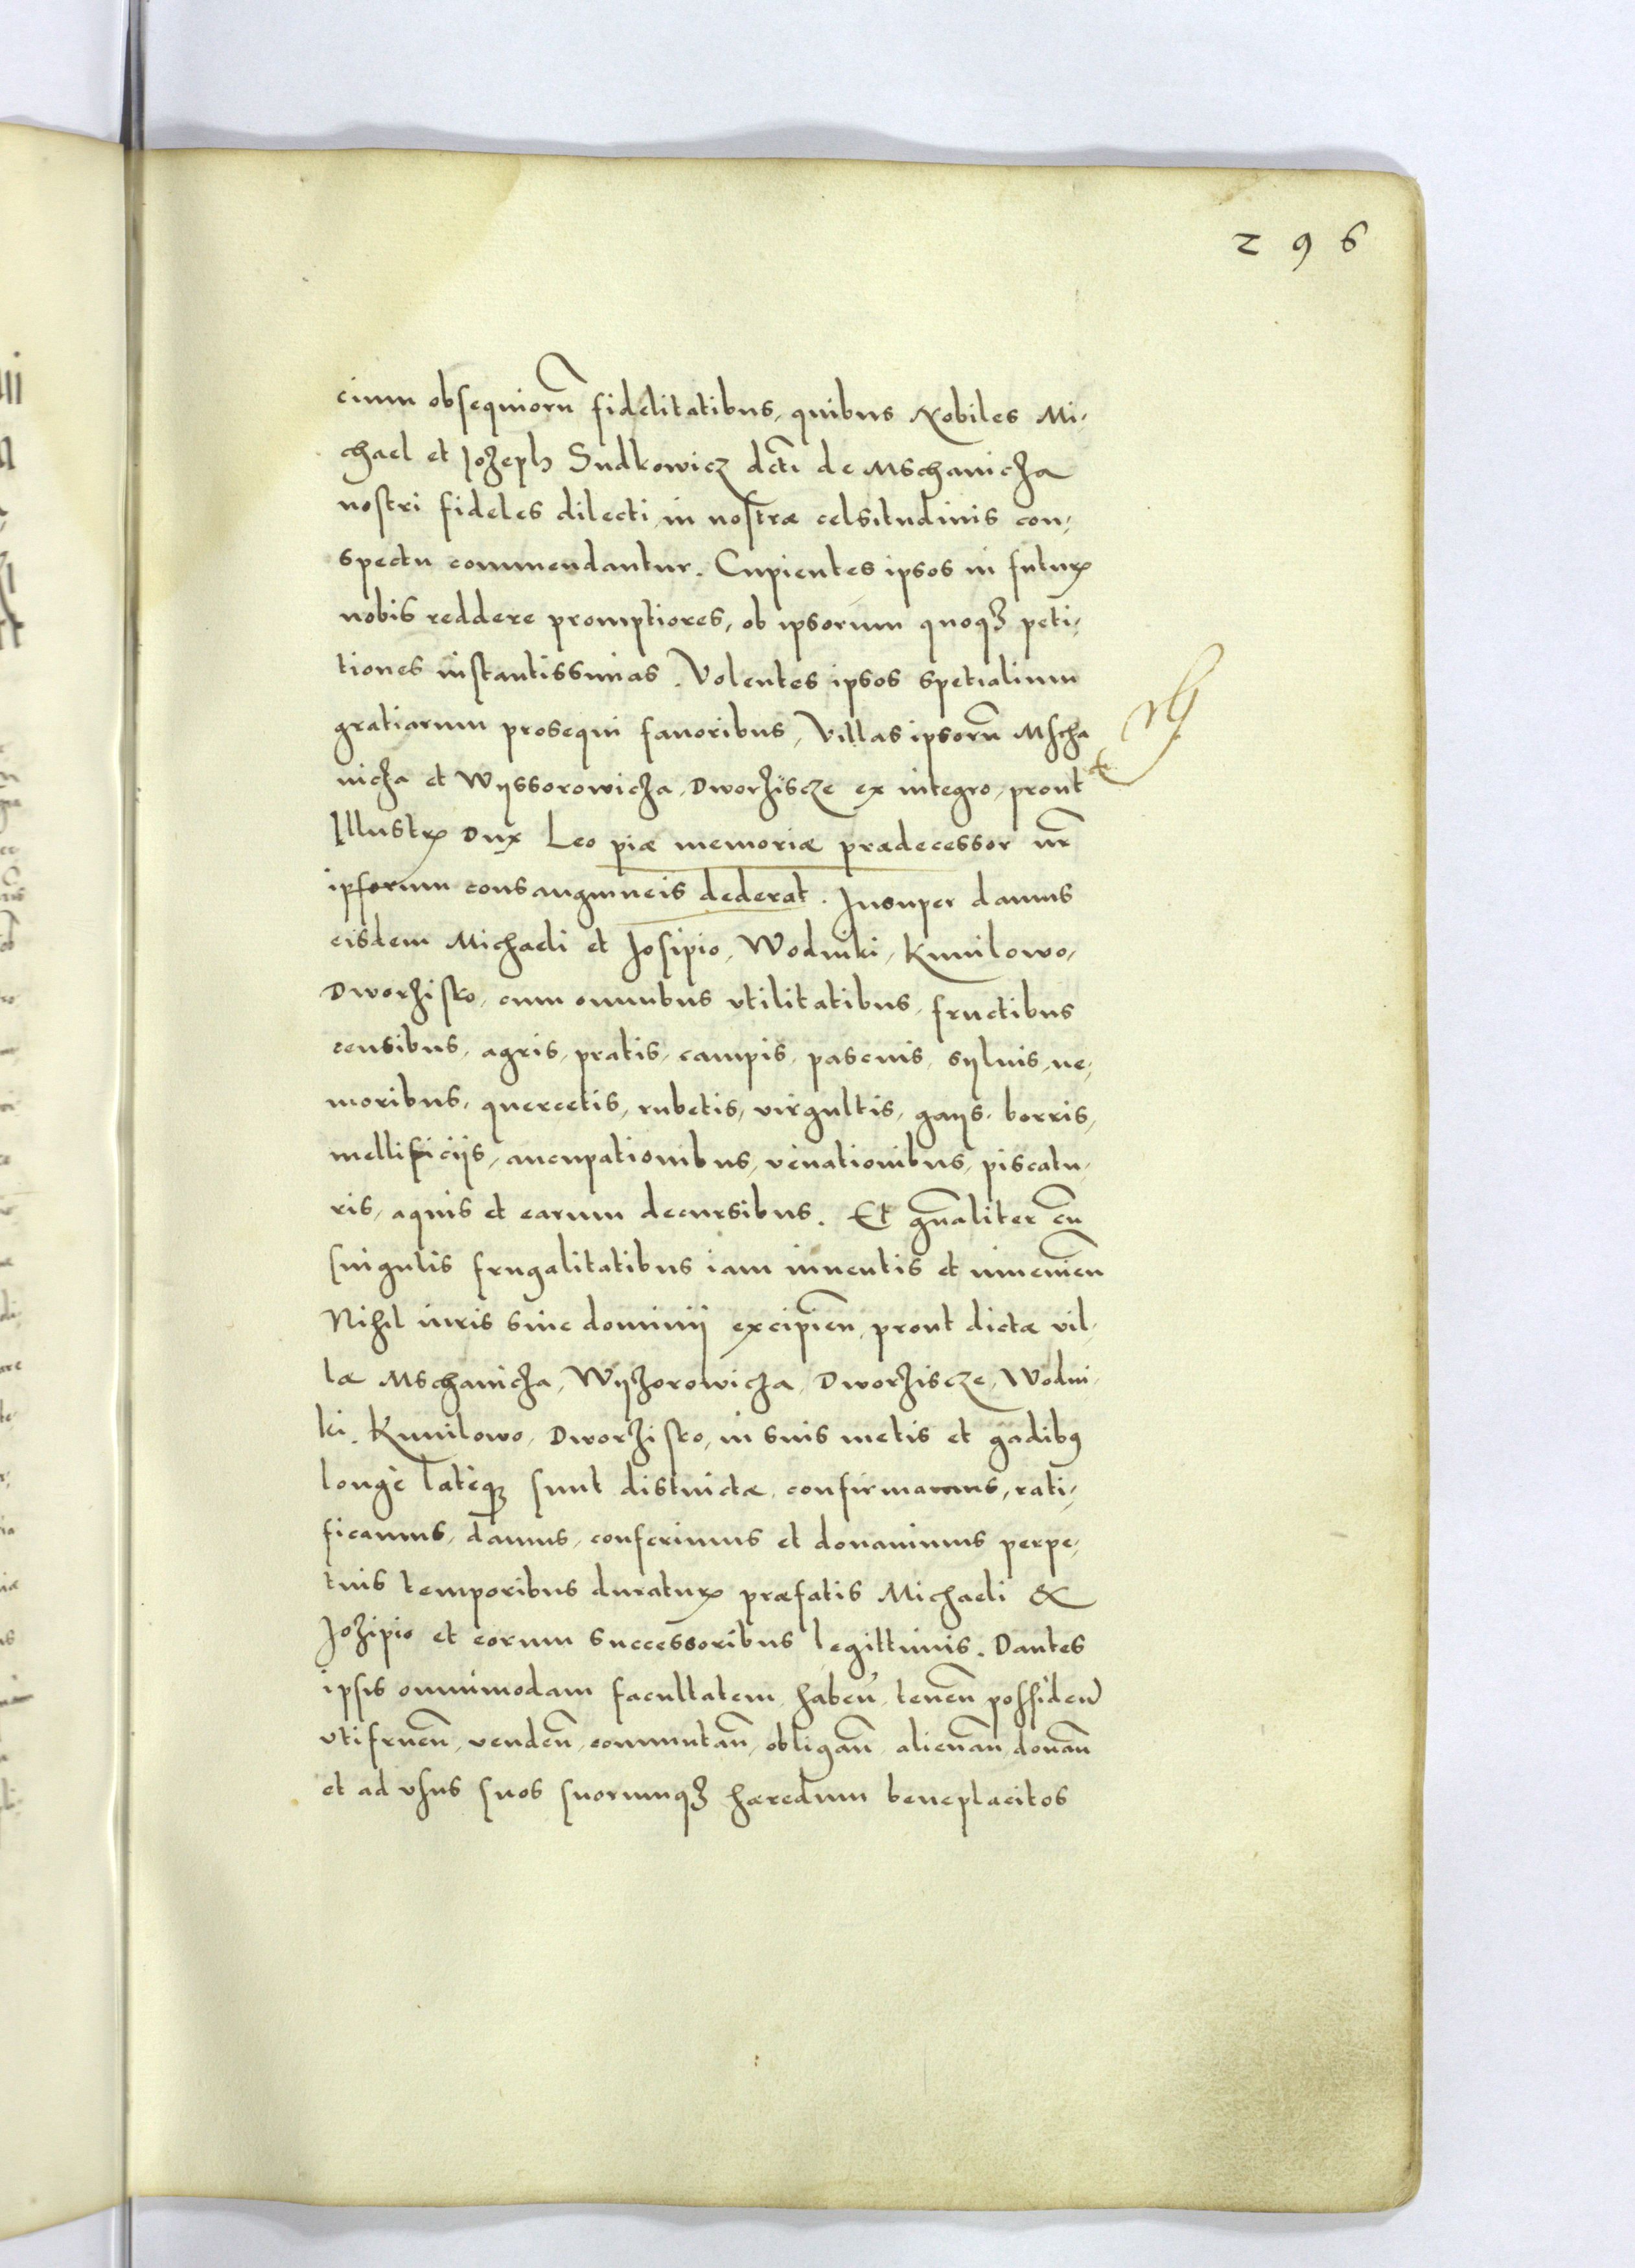 296
cium obsequiorũ fidelitatibus, quibus Nobiles Mi,
chael et Jozeph Sudkowicz dcti de Mschanicza
nostri fideles dilecti, in nostræ celsitudinis con,
spectu commendantur. Cupientes ipsos in futurꝝ
nobis reddere promptiores, ob ipsorum quoqꝫ peti,
tiones instantissimas. Volentes ipsos spetialium
gratiarum prosequi fauoribus, Villas ipsorũ Mscha
nicza et Wyssorowicza, Dworziscze ex integro, prout
Illustrꝝ Dux Leo piæ memoriæ prædecessor nr̃
ipsorum consanguineis dederat. Insuper damus
eisdem Michaeli et Josipio, Wodniki, Kunilowo,
Dworzisko, cum omnibus vtilitatibus, fructibus
censibus, agris, pratis, campis, pascuis, syluis, ne,
moribus, quercetis, rubetis, virgultis, gays, borris,
mellificiis, aucupationibus, venationibus, piscatu,
ris, aquis et earum decursibus. Et gñaliter cũ
singulis frugalitatibus iam inuentis et inueniẽn
Nihil iuris siue dominij excipiẽn, prout dictæ vil,
læ Mschanicza, Wyzorowicza, Dworziscze, Wodni,
ki, Kunilowo, Dworzisko, in suis metis et gadibꝰ
longè latèqꝫ sunt distinctæ, confirmamus, rati,
ficamus, damus, conferimus et donauimus perpe,
tuis temporibus duraturꝝ præfatis Michaeli &
Jozipio et eorum successoribus legittimis. Dantes
ipsis omnimodam facultatem, habeñ, teneñ, possideñ
vtifrueñ, vendeñ, commutañ, obligañ, alienañ, donañ
et ad vsus suos suorumqꝫ hæredum beneplacitos